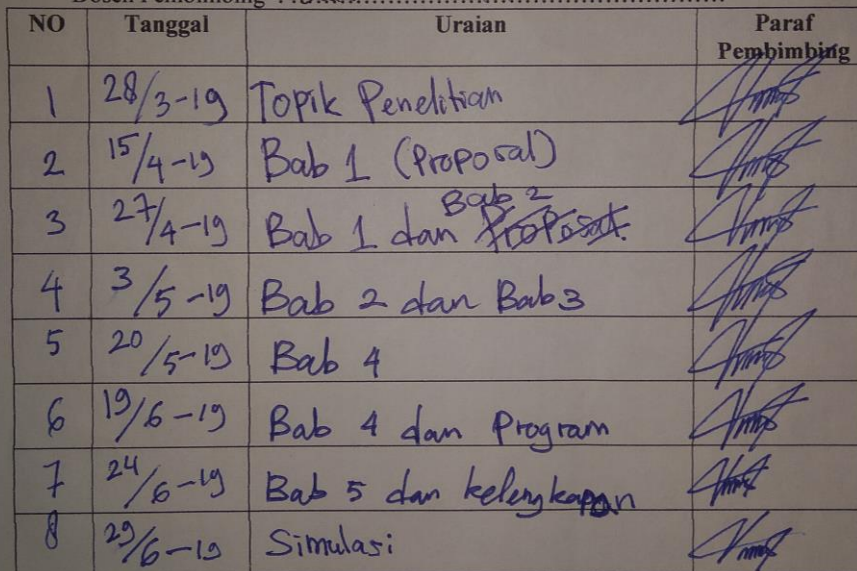 Dosen Pembimbing :
NO Tanggal Uraian Paraf Pembimbing
1 28/3-19 Topik Penelitian
2 15/4-19 Bab 1 (Proposal)
3 27/4-19 Bab 1 dan Bab 2 Proposal
4 3/5-19 Bab 2 dan Bab 3
5 20/5-19 Bab 4
6 19/6-19 Bab 4 dan Program
7 24/6-19 Bab 5 dan kelengkapan
8 29/6-19 Simulasi